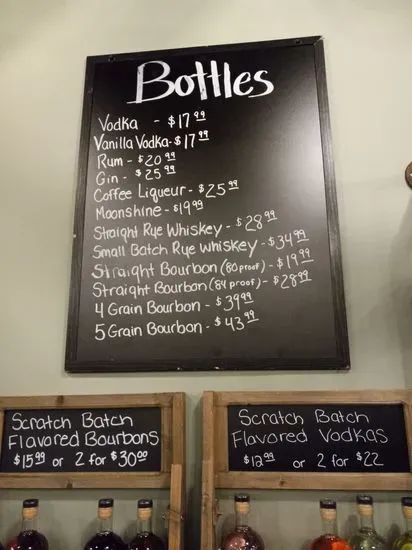 Bottles
Vodka - $17.99
Vanilla Vodka - $17.99
Rum - $20.99
Gin - $25.99
Coffee Liqueur - $25.99
Moonshine - $19.99
Straight Rye Whiskey - $28.99
Small Batch Rye Whiskey - $34.99
Straight Bourbon (80 proof) - $19.99
Straight Bourbon (84 proof) - $28.99
4 Grain Bourbon - $39.99
5 Grain Bourbon - $43.99
Scratch Batch
Flavored Bourbons
$15.99 or 2 for $30.00
Scratch Batch
Flavored Vodkas
$12.99 or 2 for $22